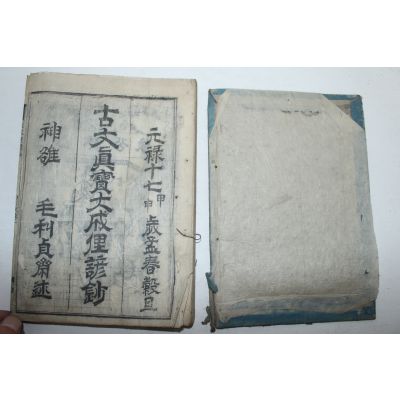 元禄十七甲申歳孟春穀旦
古文眞寶大成俚諺鈔
神雒 毛利貞齋述